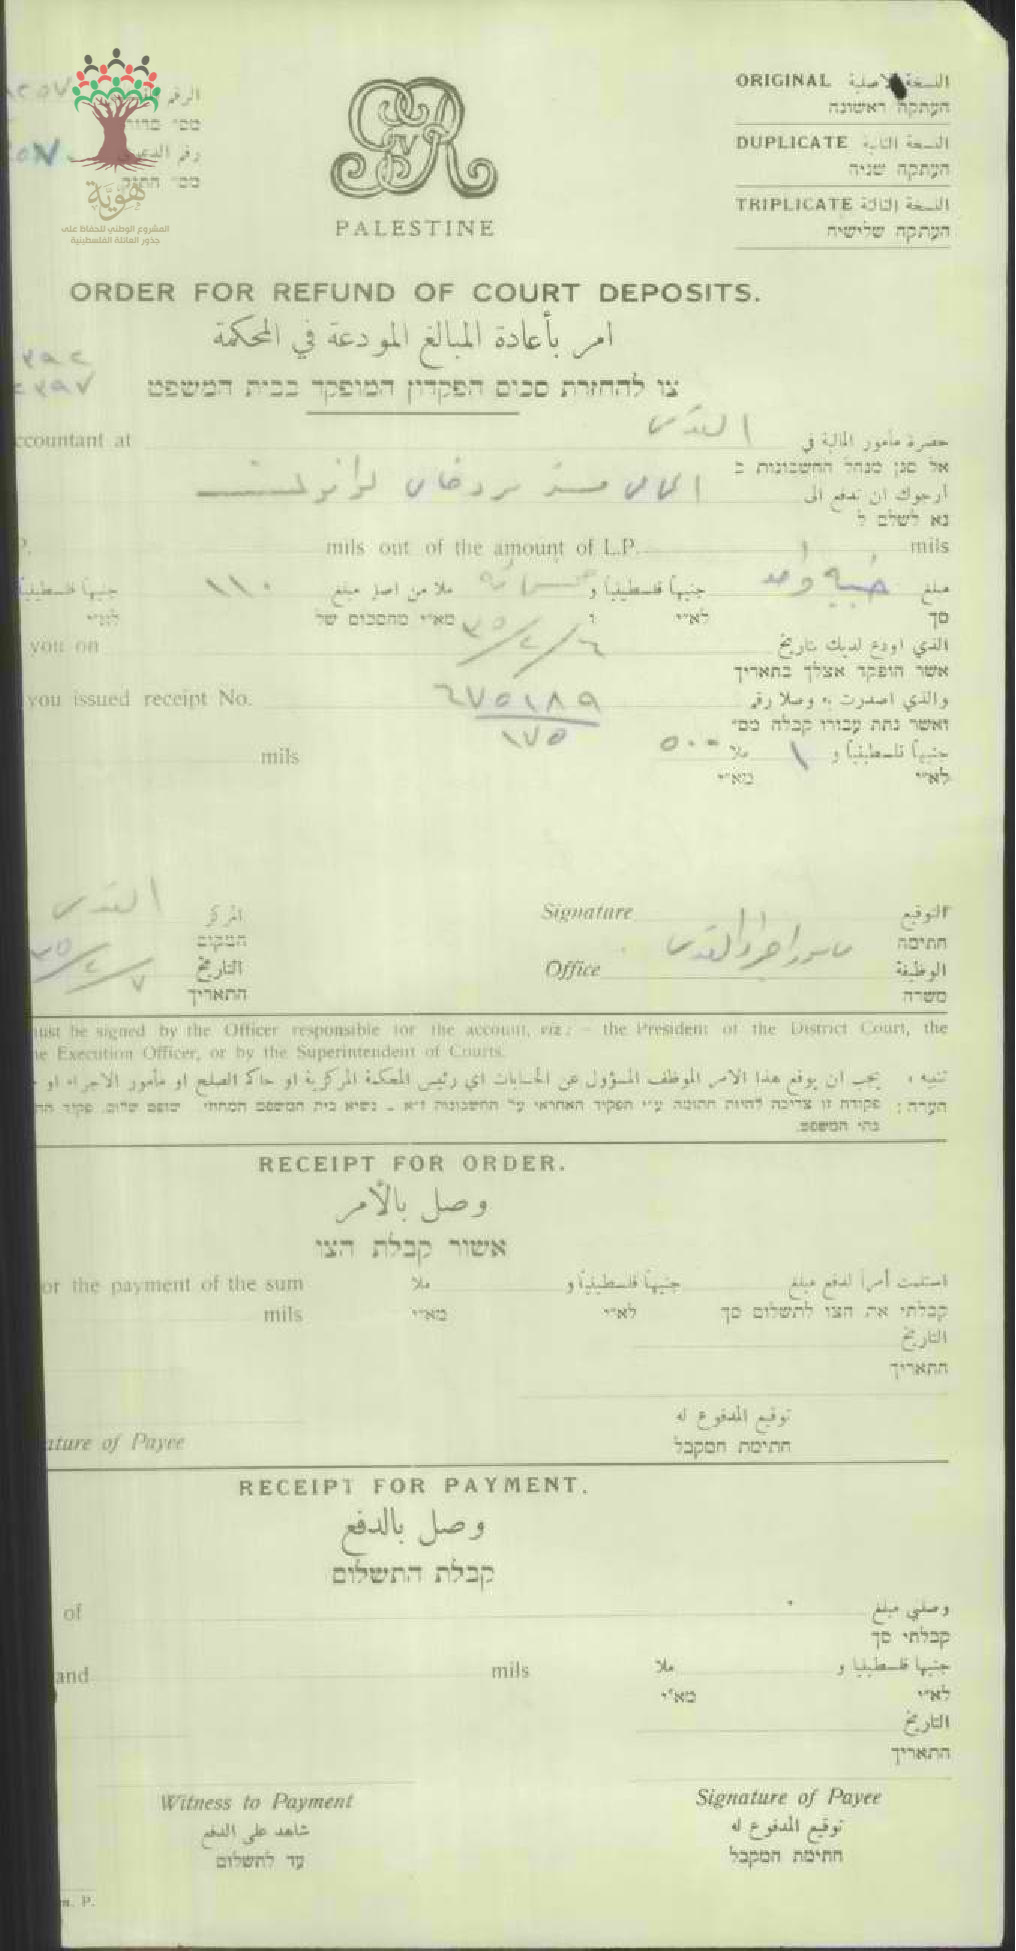 ORIGINAL النسخة الاصلية
העתקה ראשונה
DUPLICATE النسخة الثانية
העתקה שניה
TRIPLICATE النسخة الثالثة
העתקה שלישית
الرقم
מס׳
رقم الدعوى
מס׳ התיק
هوية
المشروع الوطني للحفاظ على
جذور العائلة الفلسطينية
PALESTINE
ORDER FOR REFUND OF COURT DEPOSITS.
امر بأعادة المبالغ المودعة في المحكمة
צו להחזרת סכום הפקדון המופקד בבית המשפט
ccountant at القدس حضرة مأمور المالية في
אל סגן מנהל החשבונות ב
أرجوك ان تدفع الى
נא לשלם ל
mils out of the amount of L.P. mils
مبلغ جنيه واحد جنيهاً فلسطينياً و خمسمائة ملا من اصل مبلغ ١١٠ جنيهاً فلسطينياً
סך לא״י ו מא״י מהסכום של לא״י
you on ٦/٢/٣٥ الذي اودع لديك بتاريخ
אשר הופקד אצלך בתאריך
you issued receipt No. ٦٧٥١٨٩ والذي اصدرت به وصلا رقم
١٧٥
ואשר נתת עבורו קבלה מס׳
mils ٥٠٠ ملا ١ جنيهاً فلسطينياً و
מא״י לא״י
القدس المركز Signature التوقيع
המקום חתימה
٧/٢/٣٥ التاريخ Office مأمور اجراء القدس الوظيفة
התאריך משרה
must be signed by the Officer responsible for the account, viz: – the President of the District Court, the
e Execution Officer, or by the Superintendent of Courts.
تنبيه : يجب ان يوقع هذا الامر الموظف المسؤول عن الحسابات اي رئيس المحكمة المركزية او حاكم الصلح او مأمور الاجراء او
הערה : פקודה זו צריכה להיות חתומה ע״י הפקיד האחראי על החשבונות ז״א – נשיא בית המשפט המחוזי שופט שלום, פקיד
בתי המשפט.
RECEIPT FOR ORDER.
وصل بالأمر
אשור קבלת הצו
or the payment of the sum ملا جنيهاً فلسطينياً و استلمت أمراً لدفع مبلغ
mils מא״י לא״י קבלתי את הצו לתשלום סך
التاريخ
התאריך
توقيع المدفوع له
ature of Payee חתימת המקבל
RECEIPT FOR PAYMENT.
وصل بالدفع
קבלת התשלום
of وصلني مبلغ
קבלתי סך
and mils ملا جنيهاً فلسطينياً و
מא״י לא״י
التاريخ
התאריך
Witness to Payment Signature of Payee
شاهد على الدفع توقيع المدفوع له
עד לתשלום חתימת המקבל